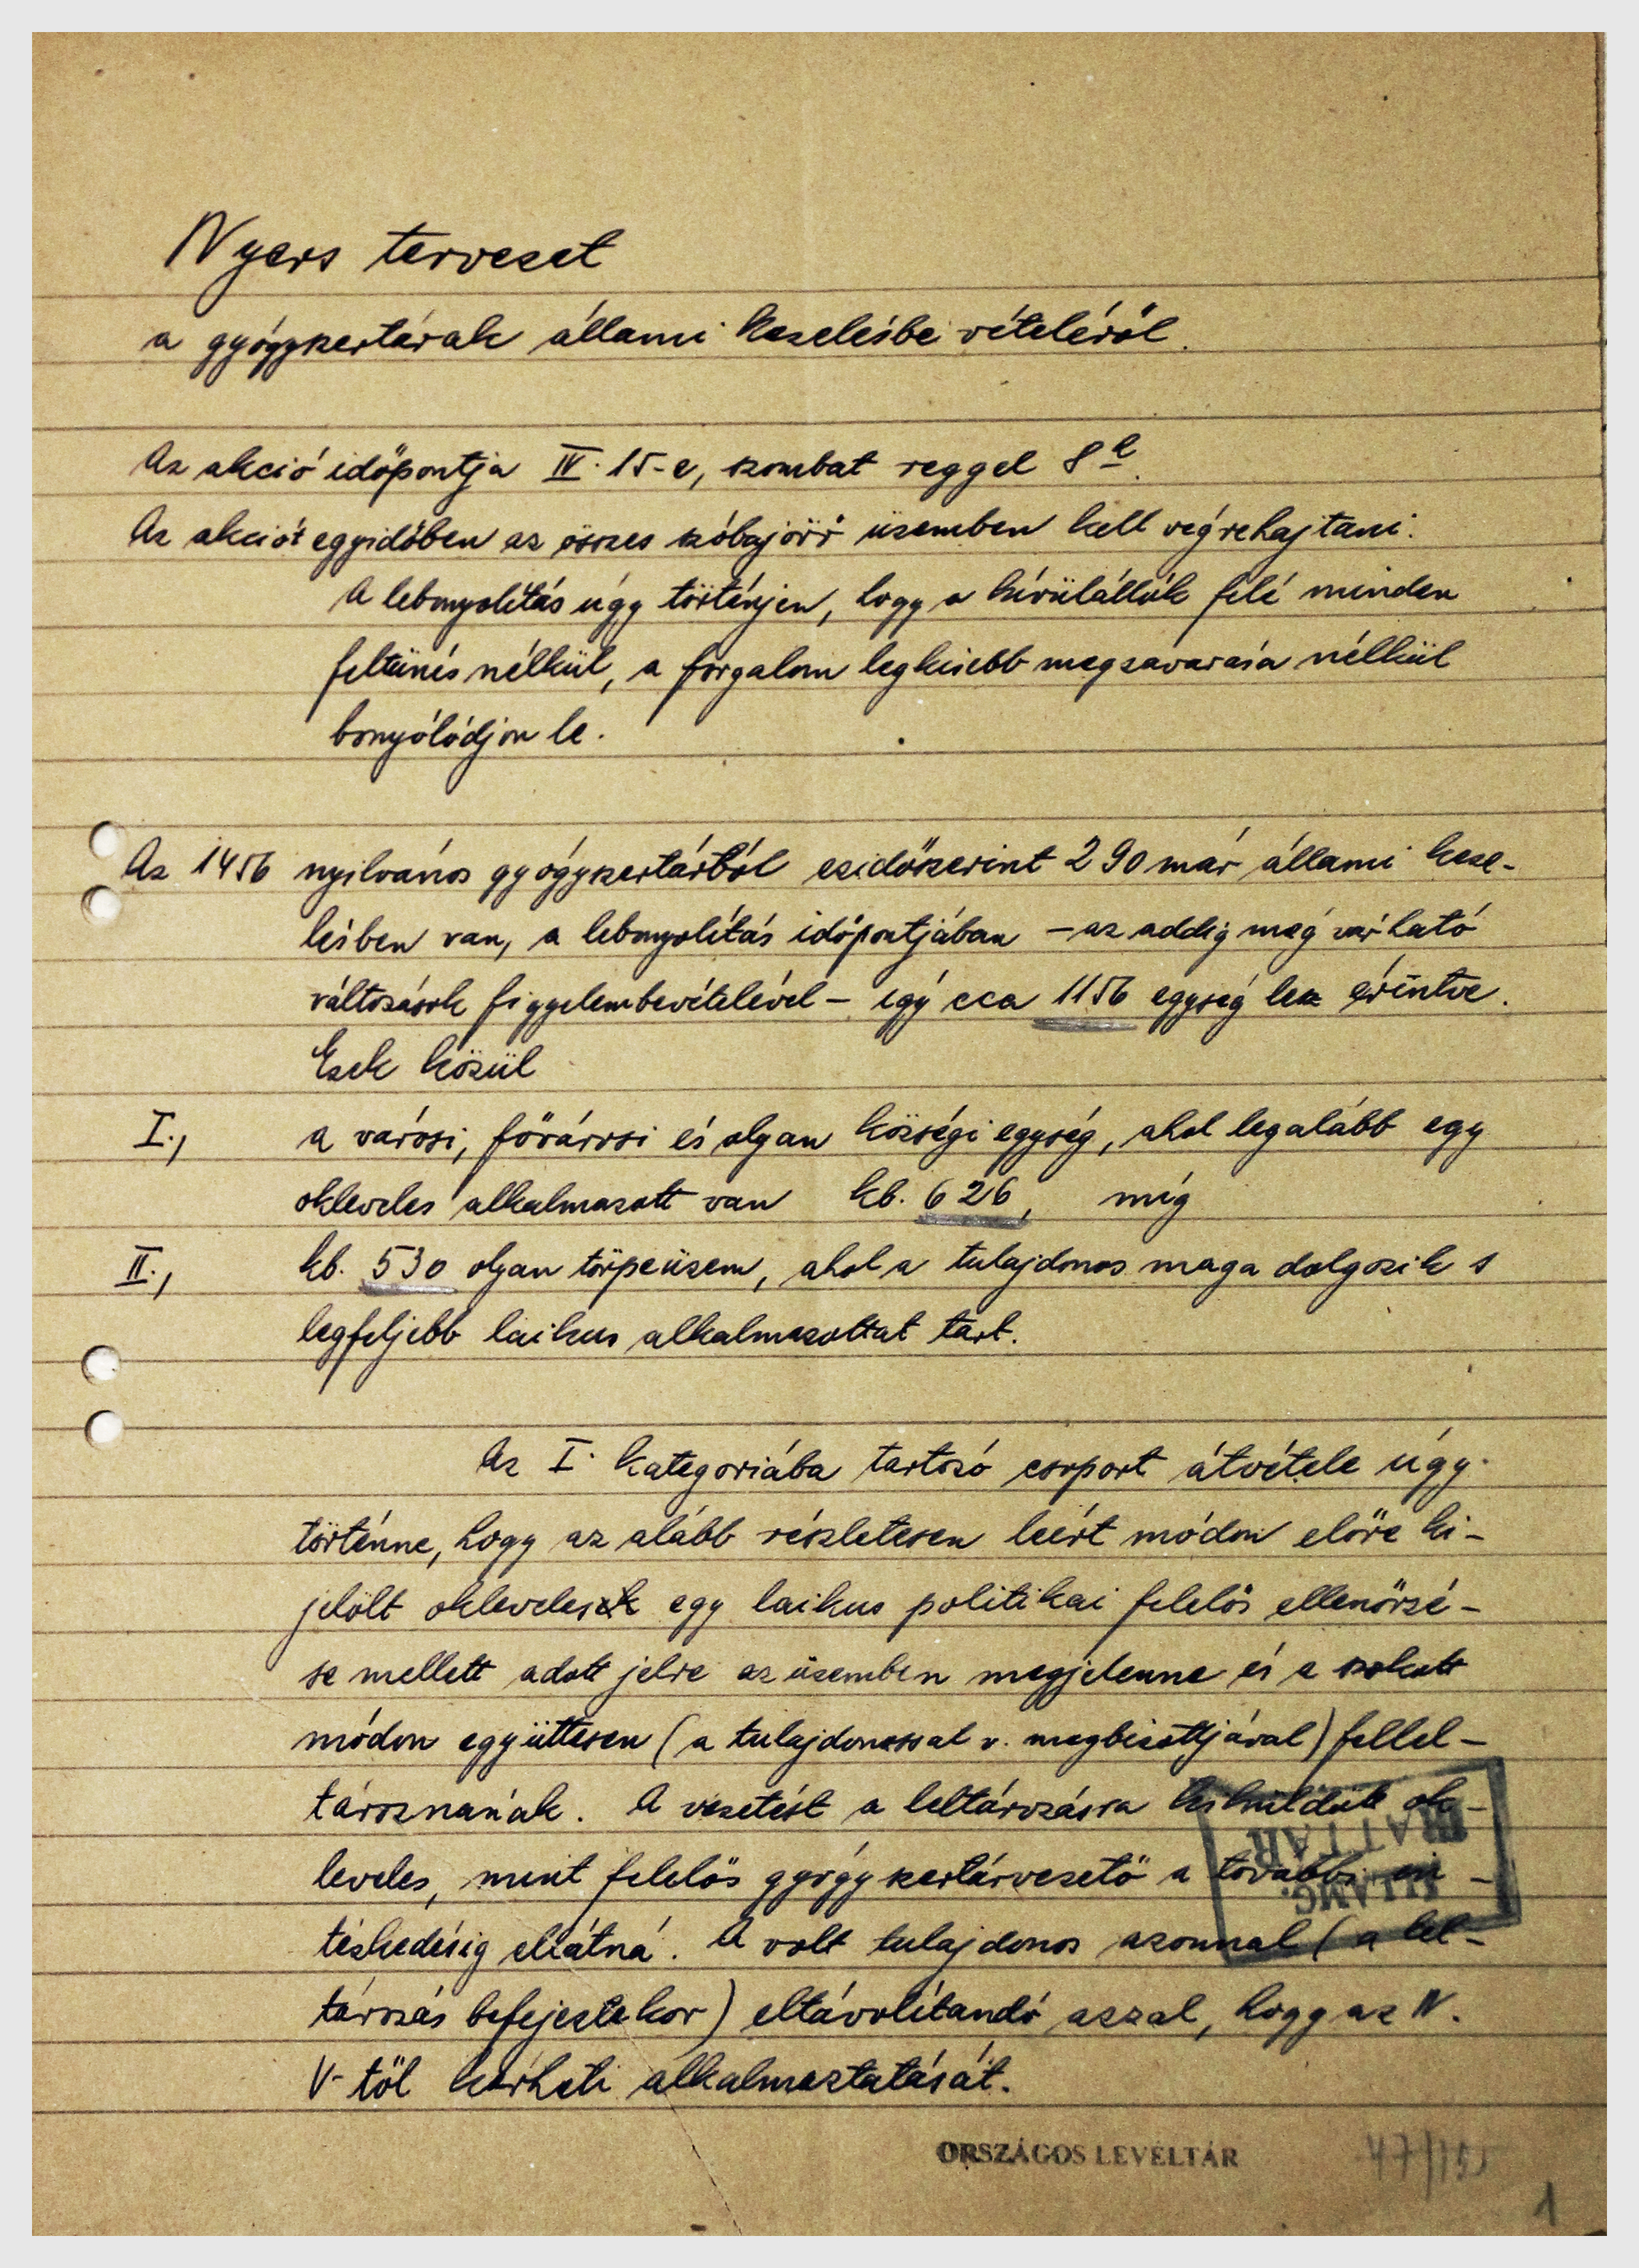 Nyers tervezet
a gyógyszertárak állami kezelésbe vételéről.
Az akció időpontja IV. 15-e, szombat reggel 8h.
Az akciót egyidőben az összes szóbajövő üzemben kell végrehajtani.
A lebonyolítás úgy történjen, hogy a kívülállók felé minden
feltünés nélkül, a forgalom legkisebb megzavarása nélkül
bonyólódjon le.
Az 1456 nyilvános gyógyszertárból ezidőszerint 290 már állami keze-
lésben van, a lebonyolítás időpontjában - az addig még várható
változások figyelembevételével - így cca 1156 egység lesz érintve.
Ezek közül
I., a városi, fővárosi és olyan községi egység, ahol legalább egy
okleveles alkalmazott van kb. 626, míg
II., kb. 530 olyan törpeüzem, ahol a tulajdonos maga dolgozik s
legfeljebb laikus alkalmazottat tart.
Az I. kategoriába tartozó csoport átvétele úgy
történne, hogy az alább részletesen leírt módon előre ki-
jelölt okleveles egy laikus politikai felelős ellenőrzé-
se mellett adott jelre az üzemben megjelenne és a szokott
módon együttesen (a tulajdonossal v. megbizottjával) fellel-
tároznának. A vezetést a leltározásra kiküldött ok-
leveles, mint felelős gyógyszertárvezető a további in-
tézkedésig ellátná. A volt tulajdonos azonnal (a lel-
tározás befejeztekor) eltávolítandó azzal, hogy az N.
V-től kérheti alkalmaztatását.
ÁLLAMG.
IRATTÁR
ORSZÁGOS LEVÉLTÁR
1